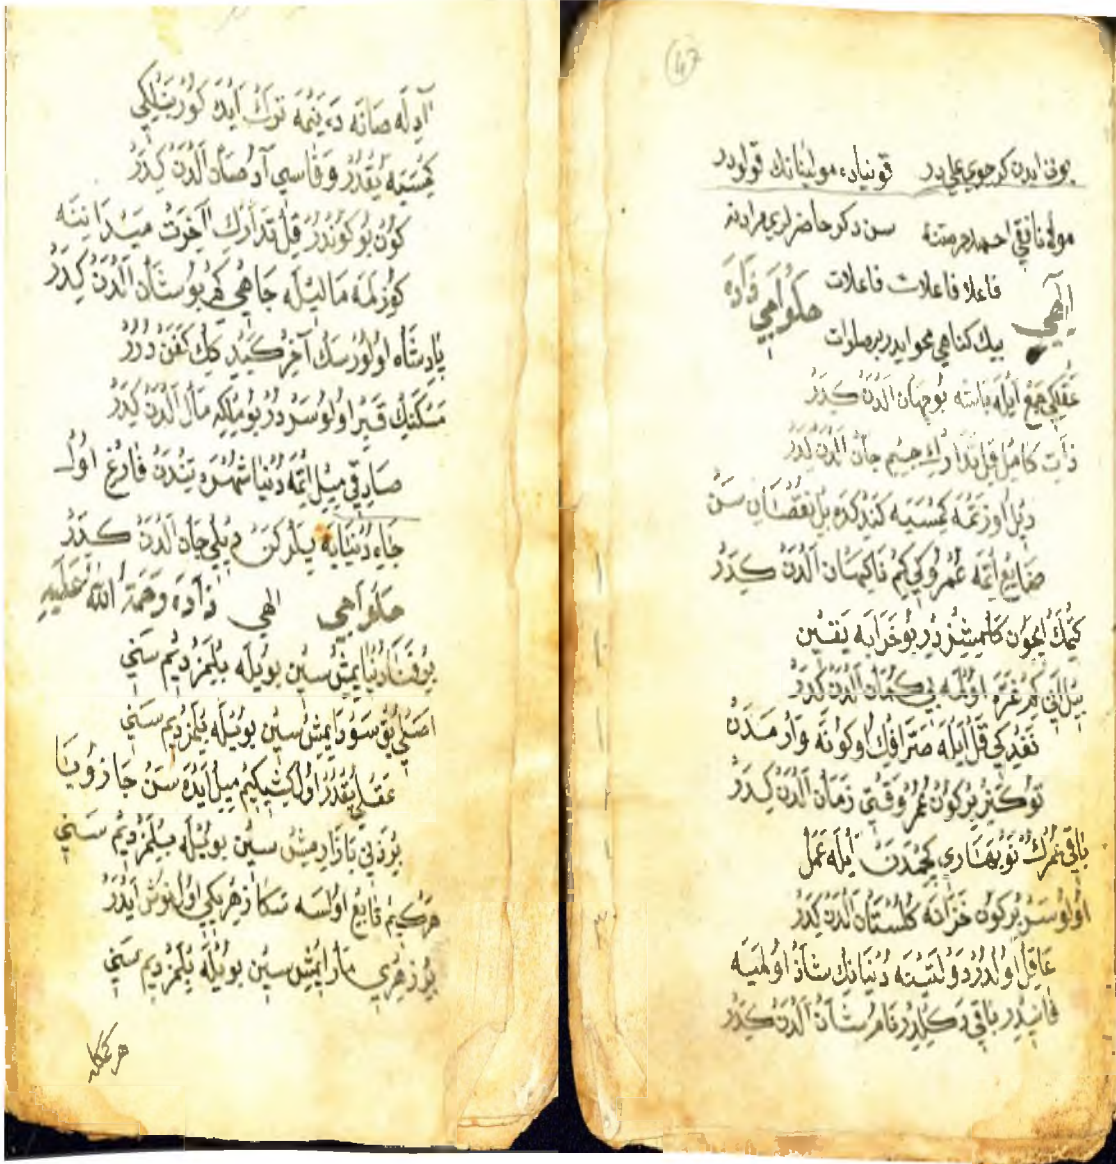 47
بونی ایدن کرجوی علی در قونیاده مولینانك قولودر
مولانا نقی احمد مرمتنه سن دکر حاضرلریمزادنه
الهی فاعلا فاعلات فاعلات حلواهي زاده
بیك کناهی محو ایدر بر صلوات
عَقلِكي جَمع اَيلَه باشنه بُوجهان اَلدَن كِدَرْ
ذات كامل قِل تدارك جِسم جان اَلدَن كِدَرْ
دِيل اوزتمه كِمسيه كَندكده بِل نقصان سَن
ضايع اتمه عُمروكي كِيم ناكهان اَلدَن كِدَرْ
كِتمك ايچون كلمشز در بو خرابه يَقين
بيل اني كم غره اولمه بي كمان اَلدَن كدَرْ
نقدكي قل ايله صرافك اوكونه وارمدن
توكنر بركون عُمر وقتي زمان اَلدَن كِدَرْ
باقي عمرك نوبهاري كچمدن ايله عمل
اولوسر بركون خزانه كلستان اَلدَن كِدَرْ
عاقل اولدر دولتينه دُنيانك شاذ اولميه
فانيدر باقي دكلدر نام شان اَلدَن كِدَرْ
آديله صانه دينمه ترك ايده كوربنلكي
كِمسيه يُقدُر وفاسي آد صان اَلدَن كِدَرْ
كون بو كوندر قِل تدارك آخرت ميداننه
كوزلمه ماليله جاهي كم بوستان اَلدَن كِدَرْ
پادشاه اولورسك آخر كيدكك كفن دُرُر
مسكنك قبر اولوسردر بو ملكه مال اَلدَن كِدَرْ
صادقي ميل اتمه دنيا شهرتندن فارغ اول
جاء دنيايه يلركن ديلي جان اَلدَن كِدَرْ
حلواهي الهي زاده رحمة الله عليه
يوفنا دنيا يمش سين بويله بلمزديم سني
اصلي يق سودايمش سين بويله بلمزديم سني
عقلي يقدر اول كشيكيم ميل ايده سن جازويا
يوزني بازارمش سين بويله بلمزديم سني
هركيم تابع اولسه سكا زهركي اول نوش ايدر
يوزهري مار ايمش سين بويله بلمزديم سني
هر كمكه